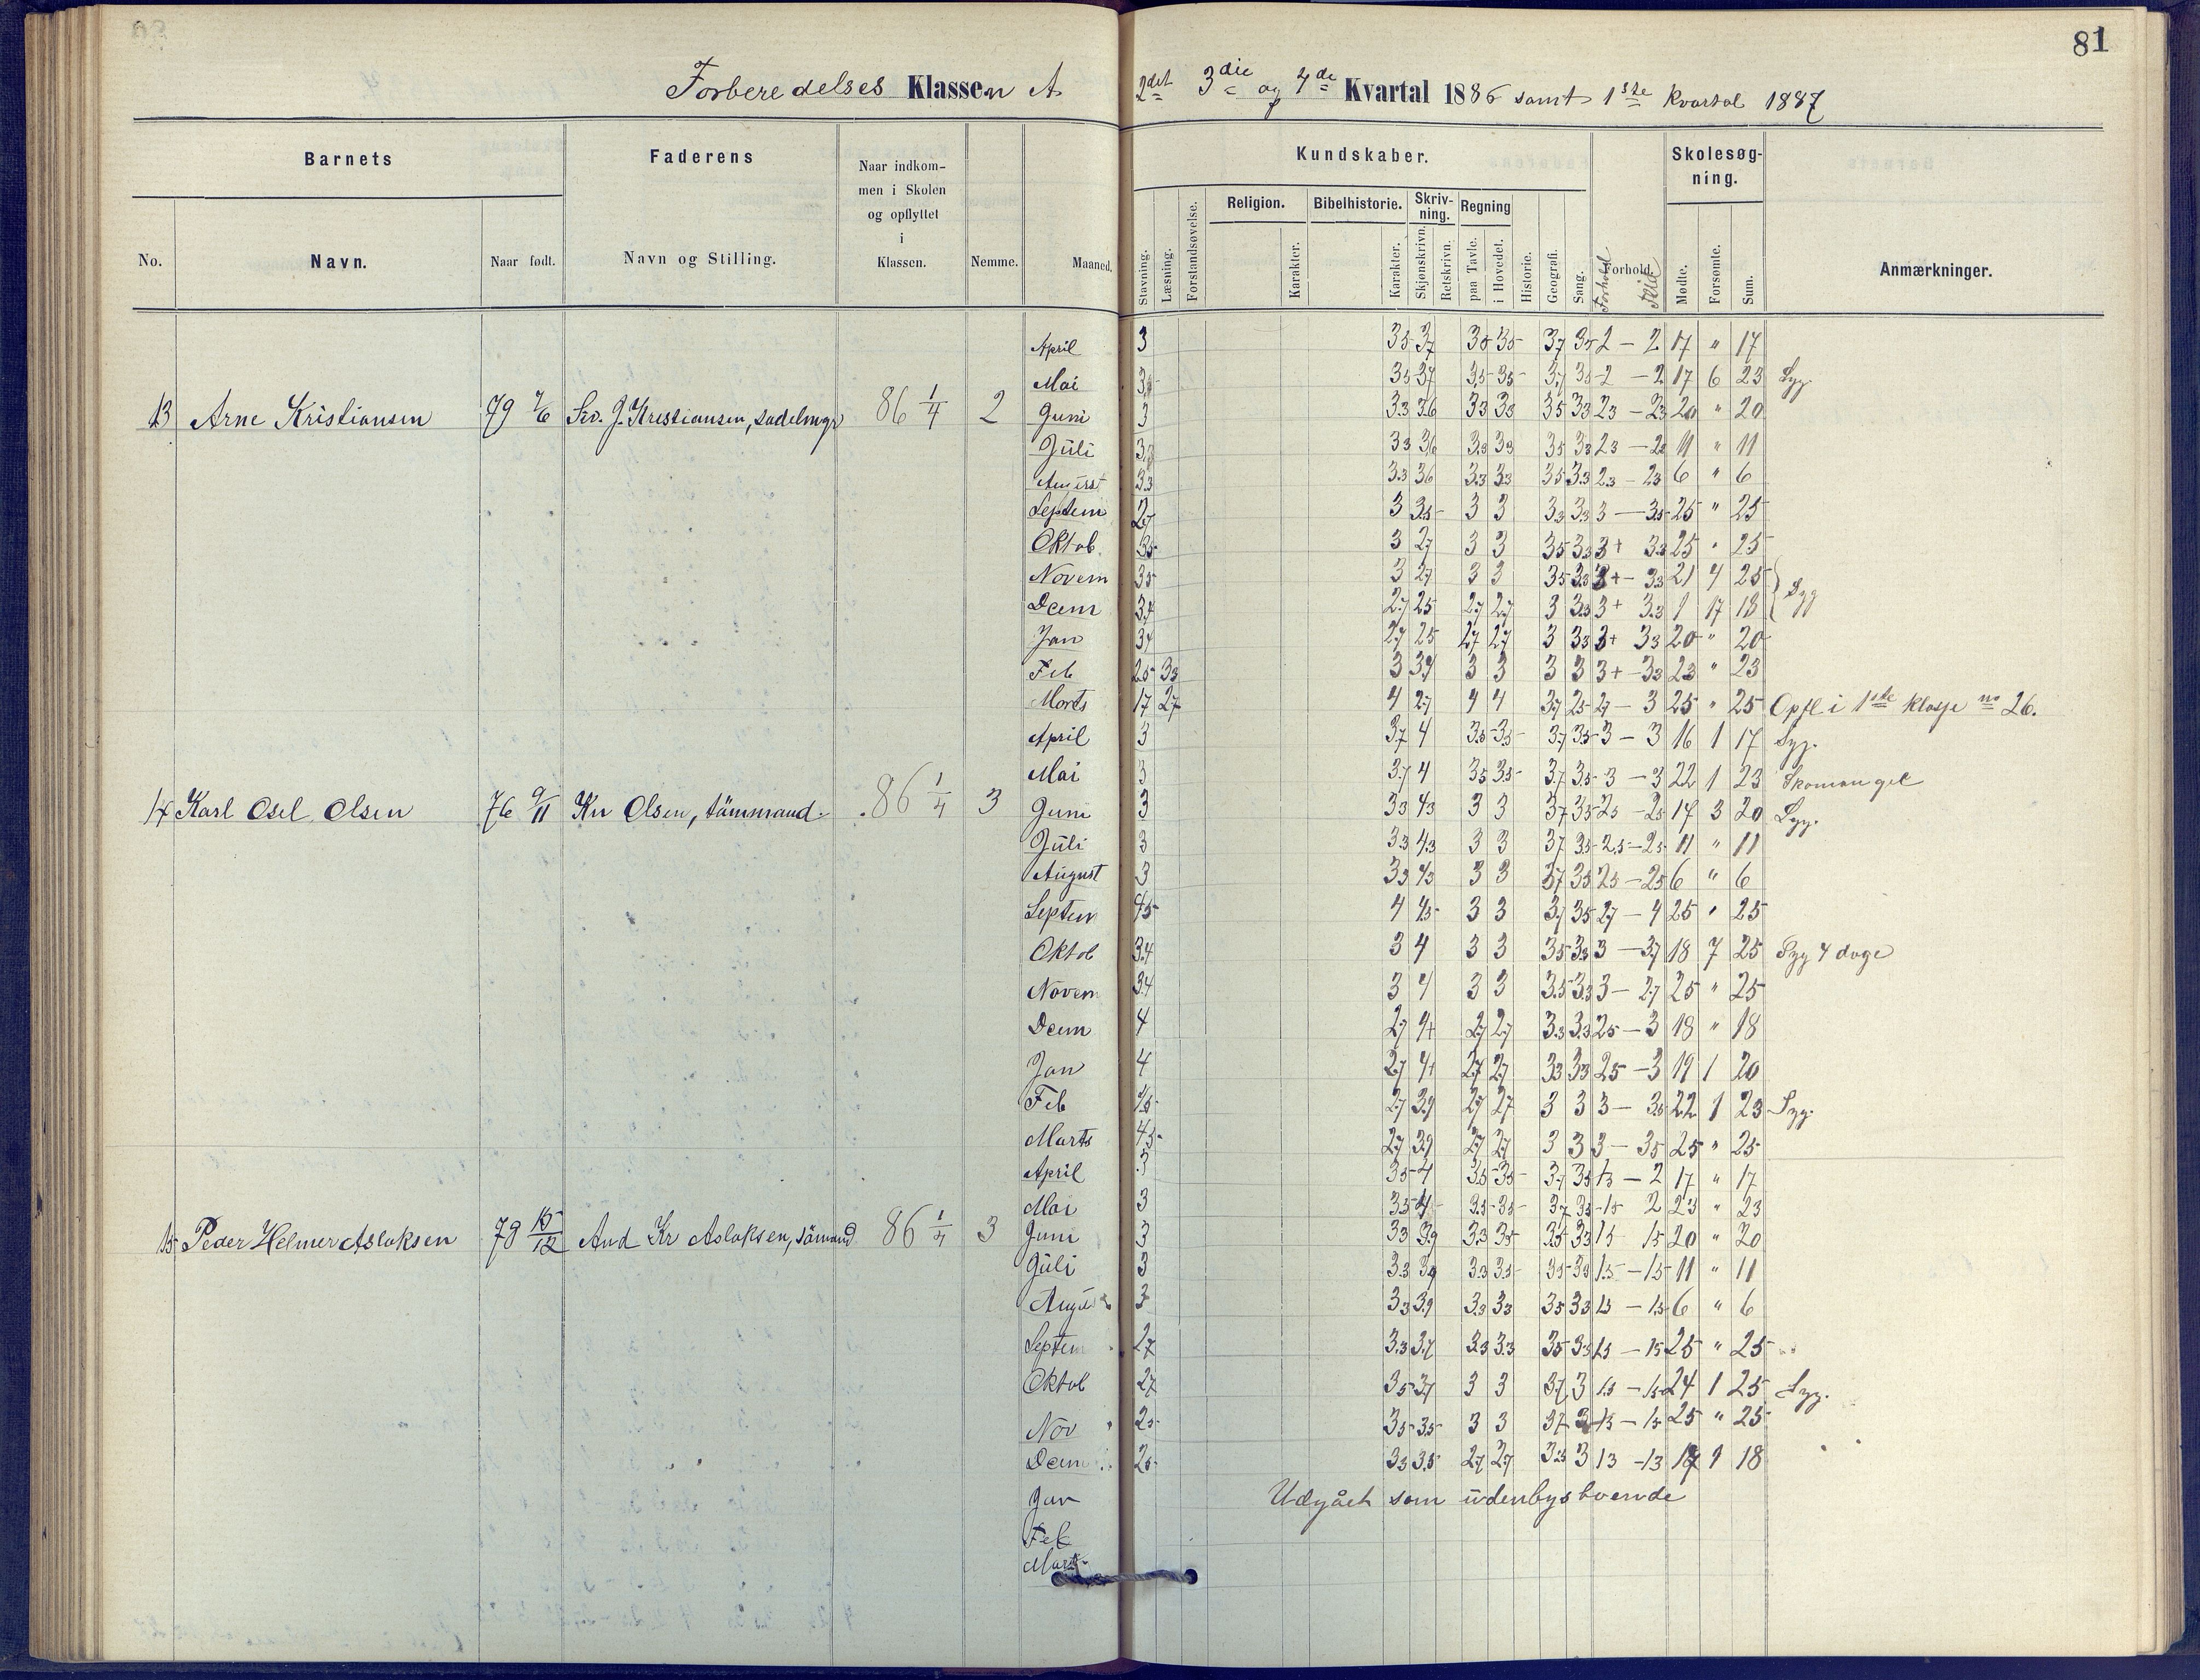 81
Forberedelses Klassen A
2det 3die og 4de Kvartal 1886 samt 1ste Kvartal 1887
Barnets
Faderens
Naar indkommen i Skolen og opflyttet i Klassen.
Nemme.
Maaned.
No.
Navn.
Naar født.
Navn og Stilling.
Kundskaber.
Stavning.
Læsning.
Forstandsøvelse.
Religion.
Karakter.
Bibelhistorie.
Karakter.
Skrivning.
Skjønskrivn.
Retskrivn.
Regning
paa Tavle.
i Hovedet.
Historie.
Geografi.
Sang.
Forhold.
Forhold Flid
Skolesøgning.
Mødte.
Forsømte.
Sum.
Anmærkninger.
April 3 35 37 35 35 37 35 2 - 2 17 " 17
Mai 35 37 35 35 37 35 2 - 2 17 6 23 Syg.
13 Arne Kristiansen 79 J. Kristiansen, sadelmgr 86 1/4 2 Juni 3 33 36 33 33 35 33 23 - 23 20 " 20
Juli 33 36 33 33 35 33 23 11 " 11
33 33 36 33 33 35 33 23 - 23 6 " 6
Septem 27 3 35 3 3 33 33 3 - 35 25 " 25
Oktob. 35 3 27 3 3 35 33 3+ 33 25 " 25
Novem 35 3 27 3 3 35 33 3+ - 33 21 4 25 Syg
Decm 34 27 25 27 27 3 33 3+ 33 1 17 18
Jan 34 27 25 27 27 3 33 3+ 33 20 " 20
Feb 25 33 3 39 3 3 3 3 3+ - 33 23 " 23
Morts 17 27 4 27 4 4 37 25 27 - 3 25 " 25 Opfl i 1ste Klasse no 26.
April 3 37 4 35 35 37 35 3 - 3 16 1 17 Syg.
Mai 3 37 4 35 35 37 35 3 - 3 22 1 23 Skomangel
14 Karl Osel Olsen 76 9/11 Kn Olsen, tömmand. 86 1/4 3 Juni 3 33 43 3 3 37 35 25 - 25 17 3 20 Syg.
Juli 3 33 43 3 3 37 35 25 - 25 11 " 11
August 3 33 43 3 3 37 35 25 - 25 6 " 6
Septem 45 4 45 3 3 37 35 27 - 4 25 " 25
Oktob 34 3 4 3 3 35 33 3 - 37 18 7 25 Syg 4 dage
Novem 34 3 4 3 3 35 33 3 - 27 25 " 25
Decm 4 27 4 27 27 33 33 25 - 3 18 " 18
Jan 4 27 4 27 27 33 33 25 - 3 19 1 20
Feb 45 27 39 27 27 3 3 3 - 35 22 1 23 Syg.
Marts 45 27 39 27 27 3 3 3 - 35 25 " 25
April 3 35 4 35 35 37 35 15 - 2 17 " 17
Mai 3 35 4 35 35 37 35 15 2 23 " 23
15 Peder Helmer Aslaksen 78 15/12 And Kr Aslaksen, sömand 86 1/4 3 Juni 3 33 39 33 35 35 33 15 15 20 " 20
Juli 3 33 39 33 35 35 33 15 - 15 11 " 11
3 33 39 33 33 35 33 15 - 15 6 " 6
Septem 27 33 37 33 33 35 33 15 - 15 25 " 25
Oktob 27 35 37 3 3 37 3 15 - 15 24 1 25 Syg.
Nov 25 35 35 3 3 37 3 15 - 15 25 " 25
Decm 25 33 35 27 27 3 13 - 13 17 1 18
Jan Udgået som udenbysboende
Feb
Marts